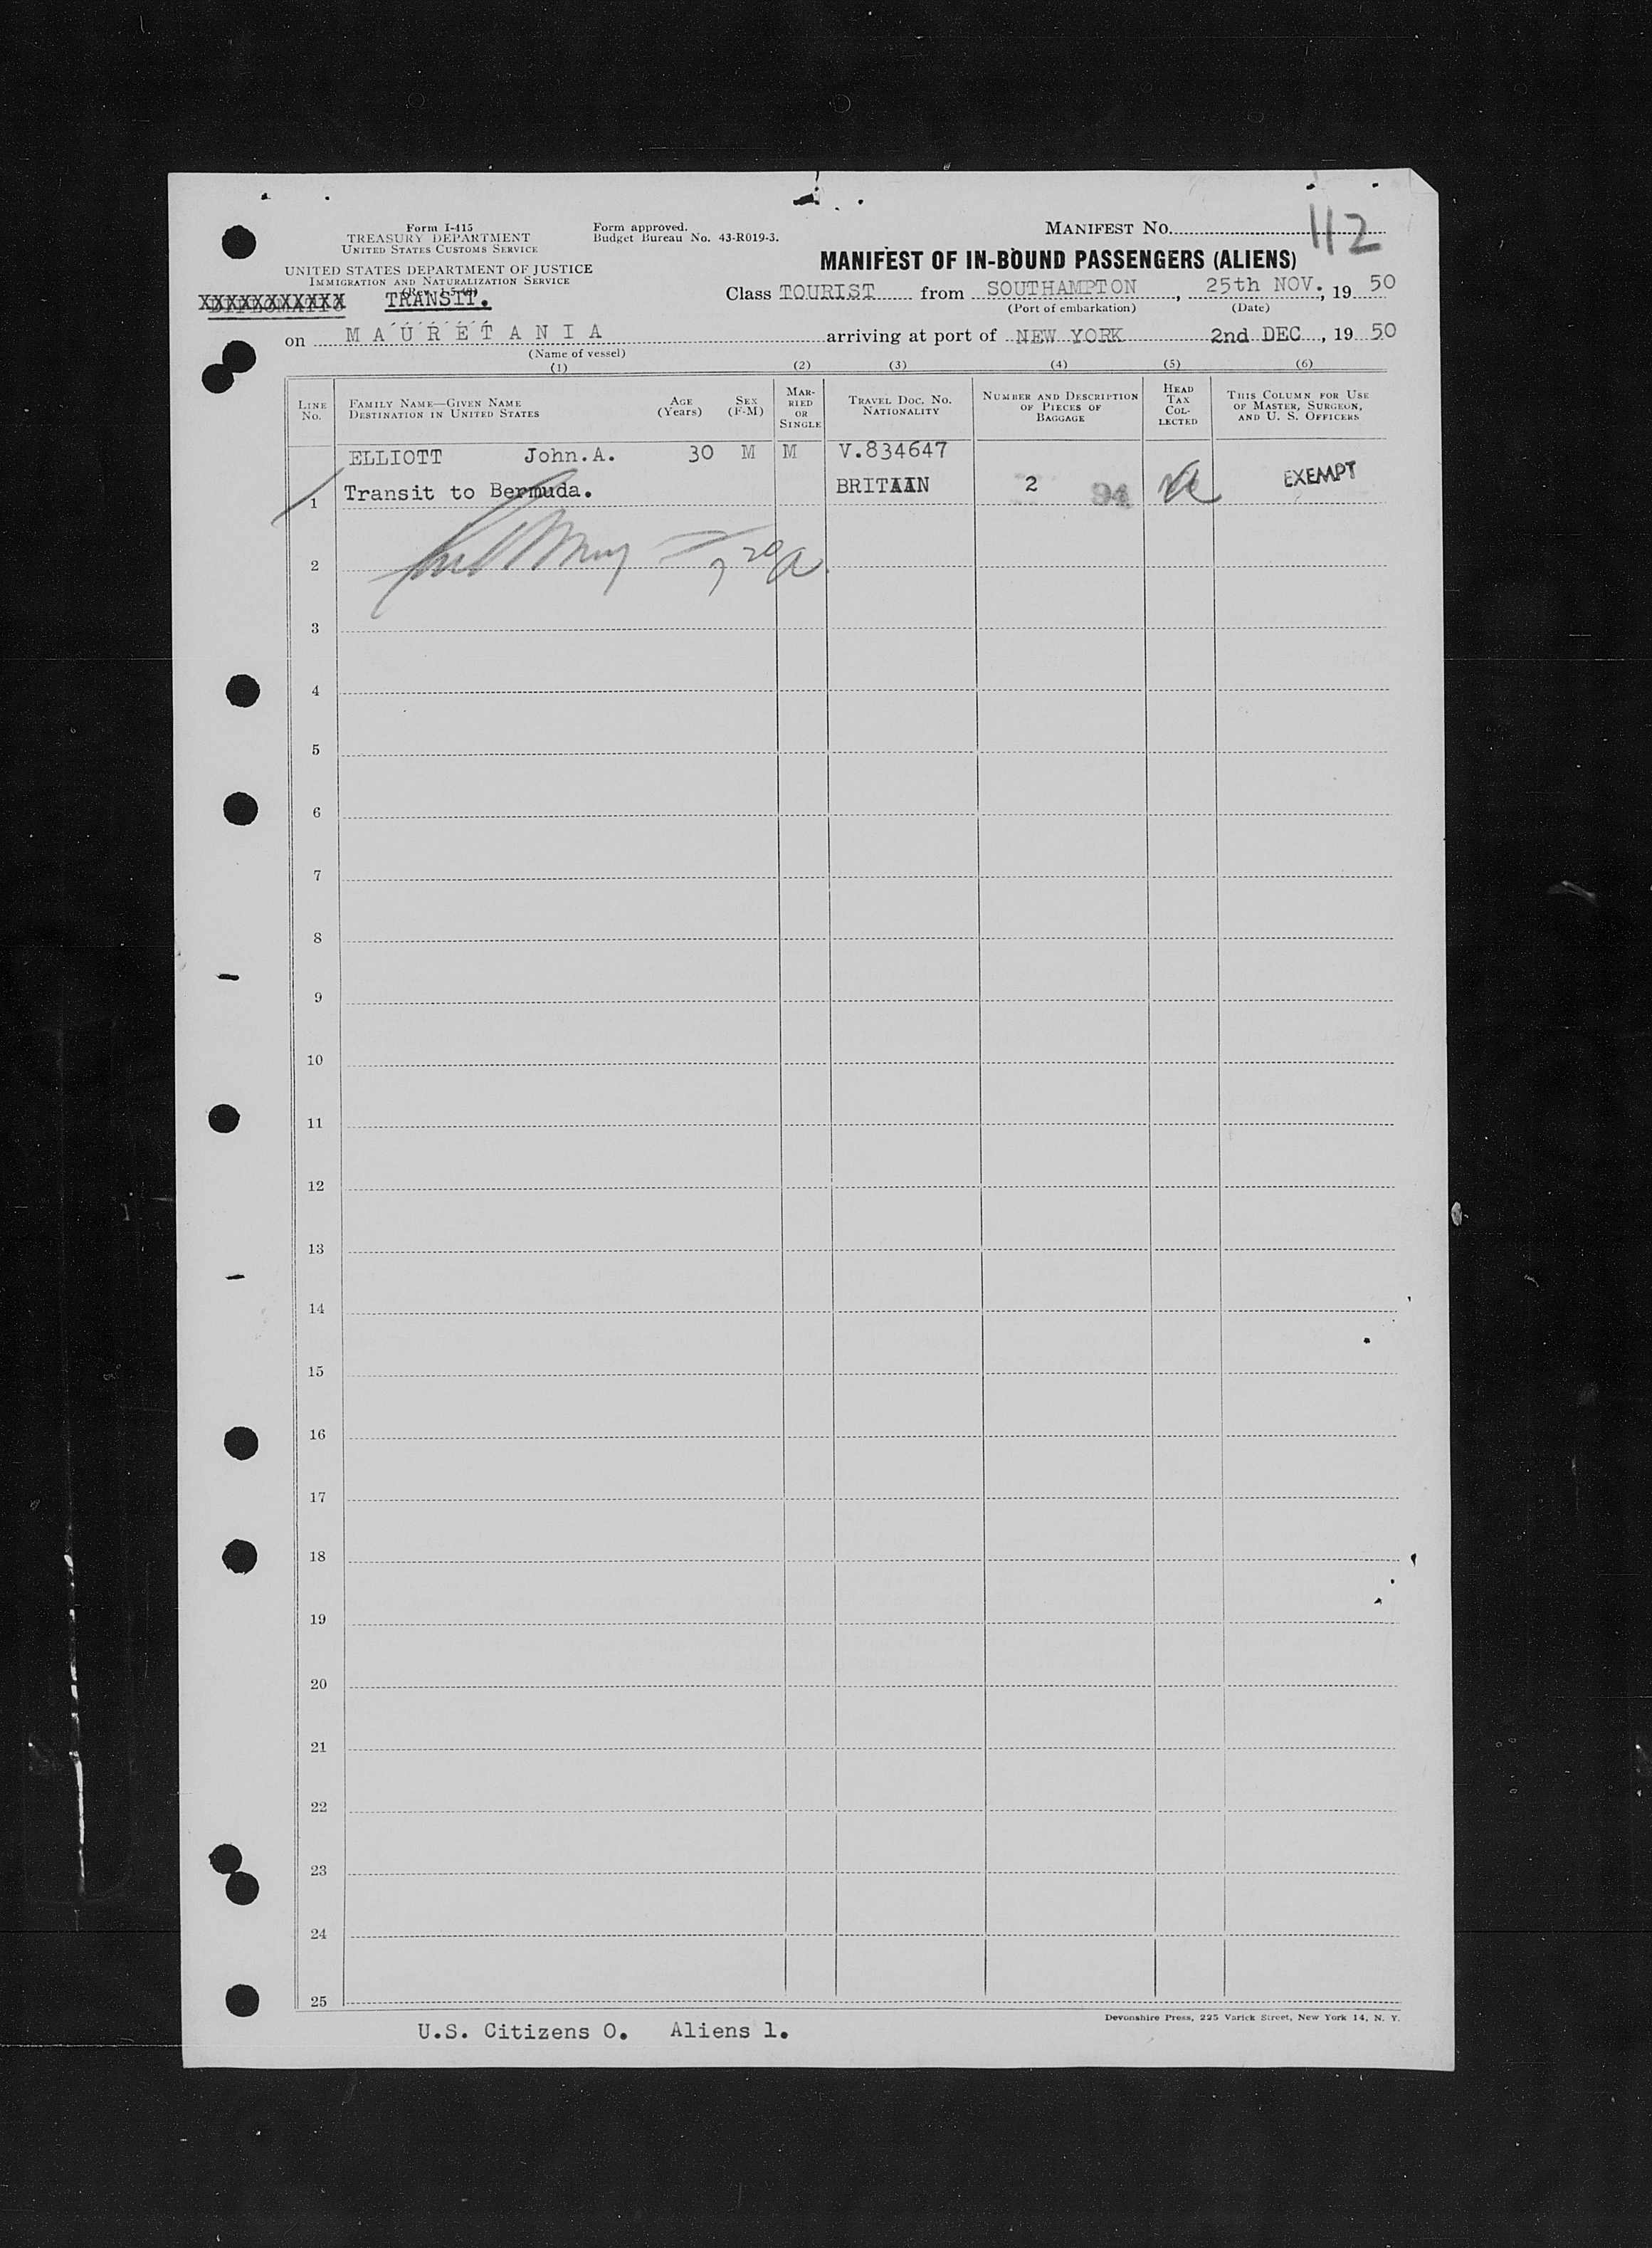 Form I-415
TREASURY DEPARTMENT
UNITED STATES CUSTOMS SERVICE
Form approved.
Budget Bureau No. 43-R019-3.
MANIFEST No. 112
UNITED STATES DEPARTMENT OF JUSTICE
IMMIGRATION AND NATURALIZATION SERVICE
MANIFEST OF IN-BOUND PASSENGERS (ALIENS)
TRANSIT.
Class TOURIST from SOUTHAMPTON, 25th NOV., 19 50
(Port of embarkation) (Date)
on MAURETANIA arriving at port of NEW YORK 2nd DEC, 19 50
(Name of vessel)
(1) (2) (3) (4) (5) (6)
LINE No.
FAMILY NAME—GIVEN NAME
DESTINATION IN UNITED STATES
AGE (Years)
SEX (F-M)
MARRIED OR SINGLE
TRAVEL DOC. No.
NATIONALITY
NUMBER AND DESCRIPTION OF PIECES OF BAGGAGE
HEAD TAX COLLECTED
THIS COLUMN FOR USE OF MASTER, SURGEON, AND U. S. OFFICERS
ELLIOTT John.A. 30 M M V.834647
1 Transit to Bermuda. BRITAIN 2 94 EXEMPT
2
3
4
5
6
7
8
9
10
11
12
13
14
15
16
17
18
19
20
21
22
23
24
25
Devonshire Press, 225 Varick Street, New York 14, N. Y.
U.S. Citizens 0. Aliens 1.